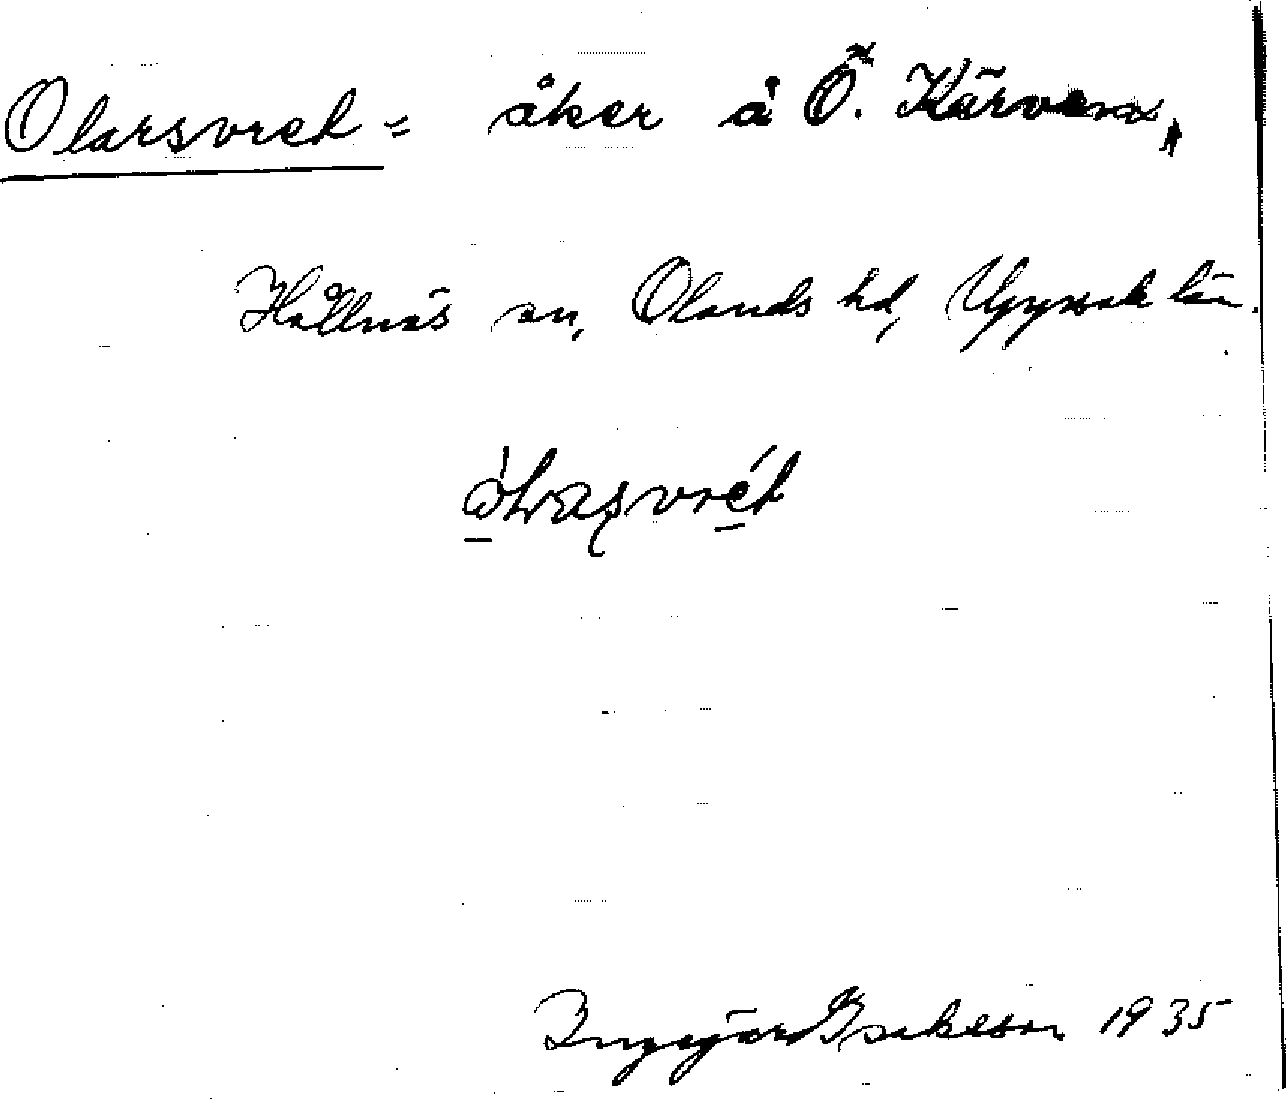 Olarsvret = åker å Ö. Kärven,
Hållnäs sn, Olands hd, Uppsala län.
Ingegärd Isakeson 1935